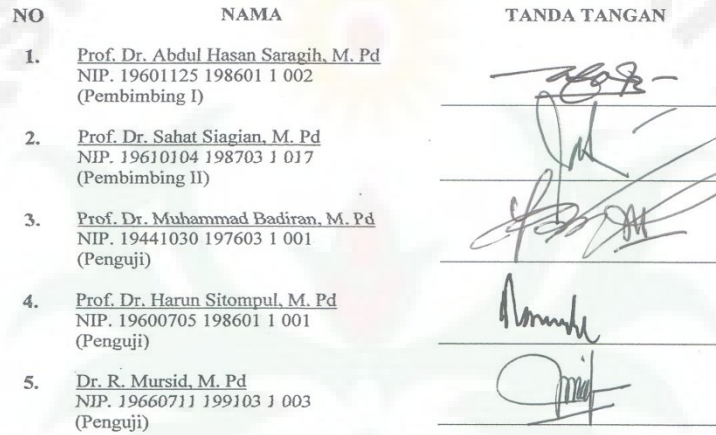 NO NAMA TANDA TANGAN
1. Prof. Dr. Abdul Hasan Saragih, M. Pd
NIP. 19601125 198601 1 002
(Pembimbing I)
2. Prof. Dr. Sahat Siagian, M. Pd
NIP. 19610104 198703 1 017
(Pembimbing II)
3. Prof. Dr. Muhammad Badiran, M. Pd
NIP. 19441030 197603 1 001
(Penguji)
4. Prof. Dr. Harun Sitompul, M. Pd
NIP. 19600705 198601 1 001
(Penguji)
5. Dr. R. Mursid, M. Pd
NIP. 19660711 199103 1 003
(Penguji)